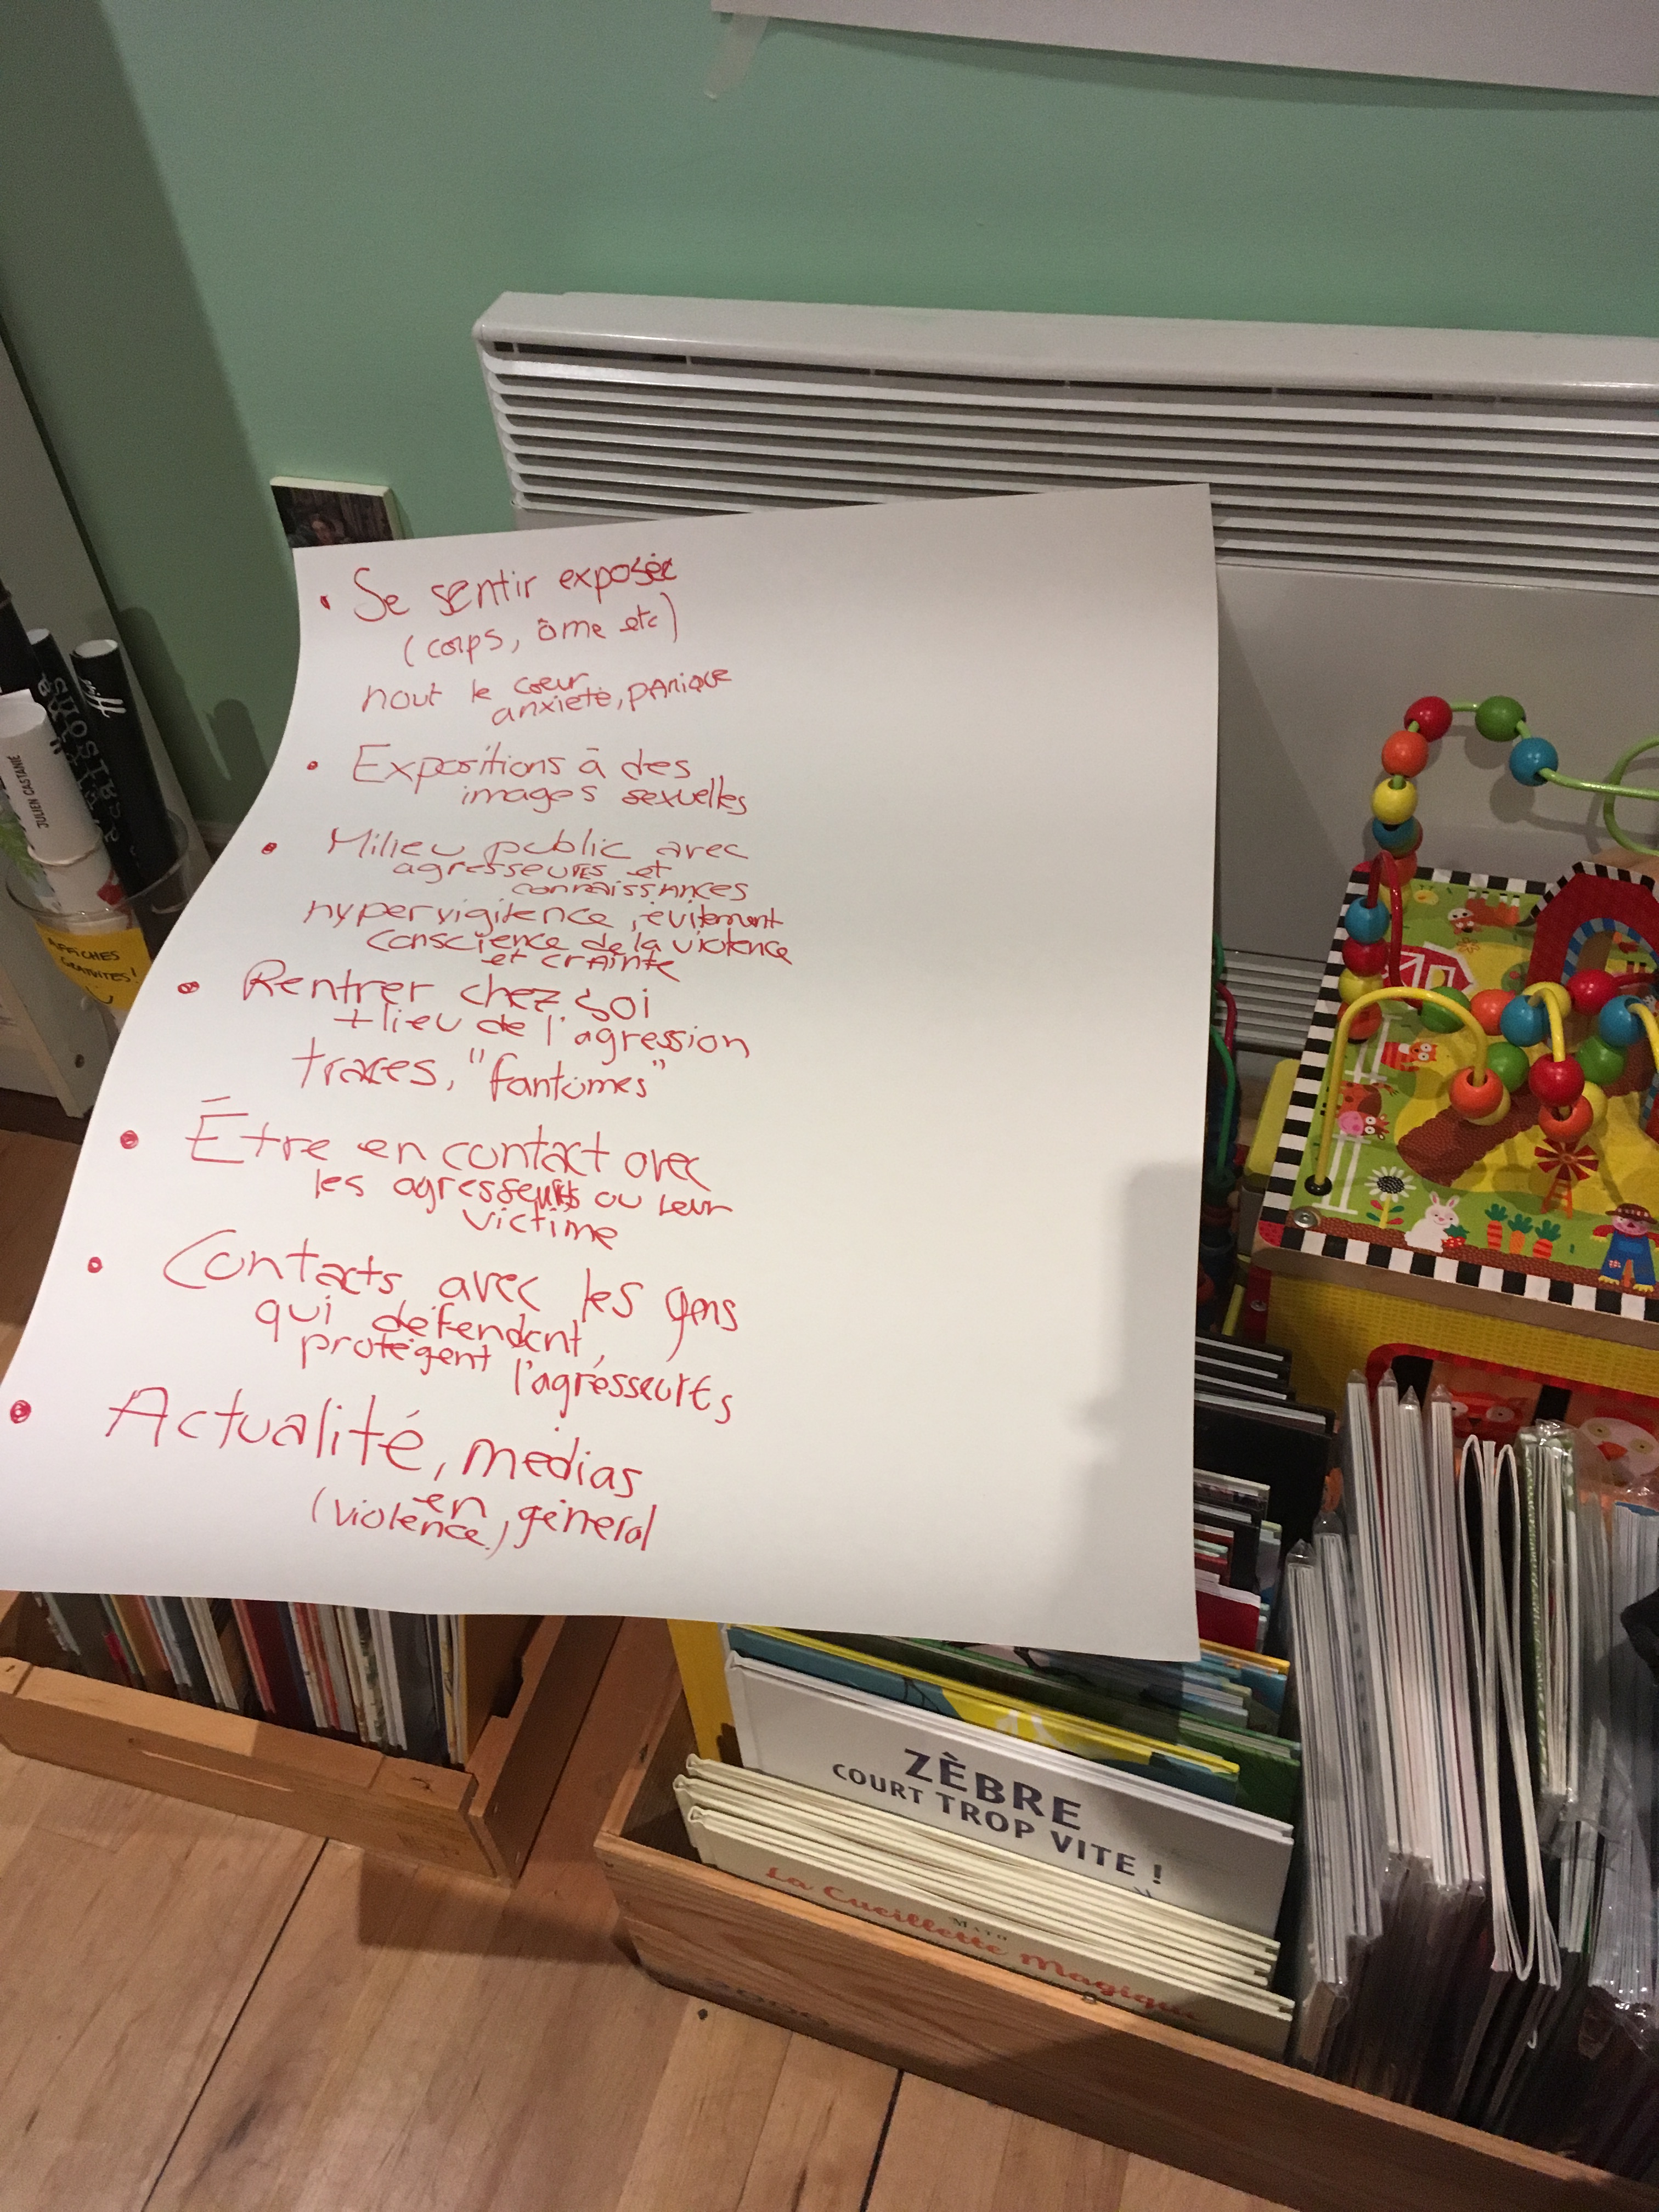 • Se sentir exposée
(corps, âme etc)
haut le coeur
anxiété, panique
• Expositions à des
images sexuelles
• Milieu public avec
agresseures et
connaissances
hypervigilence, évitement
conscience de la violence
et crainte
• Rentrer chez soi
+ lieu de l'agression
traces, "fantômes"
• Être en contact avec
les agresseurs ou leur
victime
• Contacts avec les gens
qui défendent,
protègent l'agresseures
• Actualité, médias
(violence en général)
JULIEN CASTANIÉ
AFFICHES
GRATUITES!
ZÈBRE
COURT TROP VITE !
MATO
La Cueillette Magique